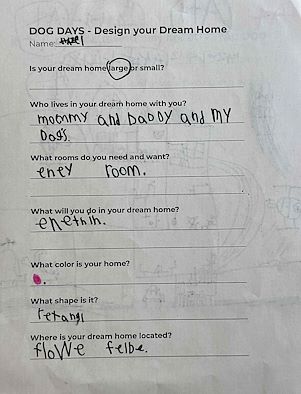 DOG DAYS - Design your Dream Home
Name:
Is your dream home large or small?
Who lives in your dream home with you?
mommy and DaDDY and MY
DoGs.
What rooms do you need and want?
eney room.
What will you do in your dream home?
enethin.
What color is your home?
What shape is it?
retangl
Where is your dream home located?
floWe felbe.